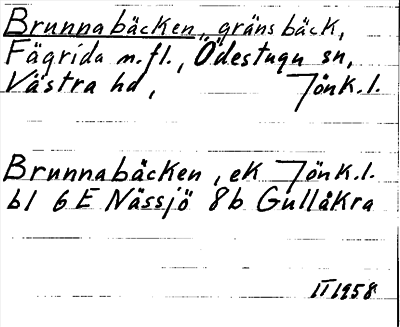 Brunnabäcken, gränsbäck,
Fägrida m.fl., Ödestugu sn,
Västra hd, Jönk.l.
Brunnabäcken, ek Jönk.l.
bl 6E Nässjö 8b Gullåkra
II 1958